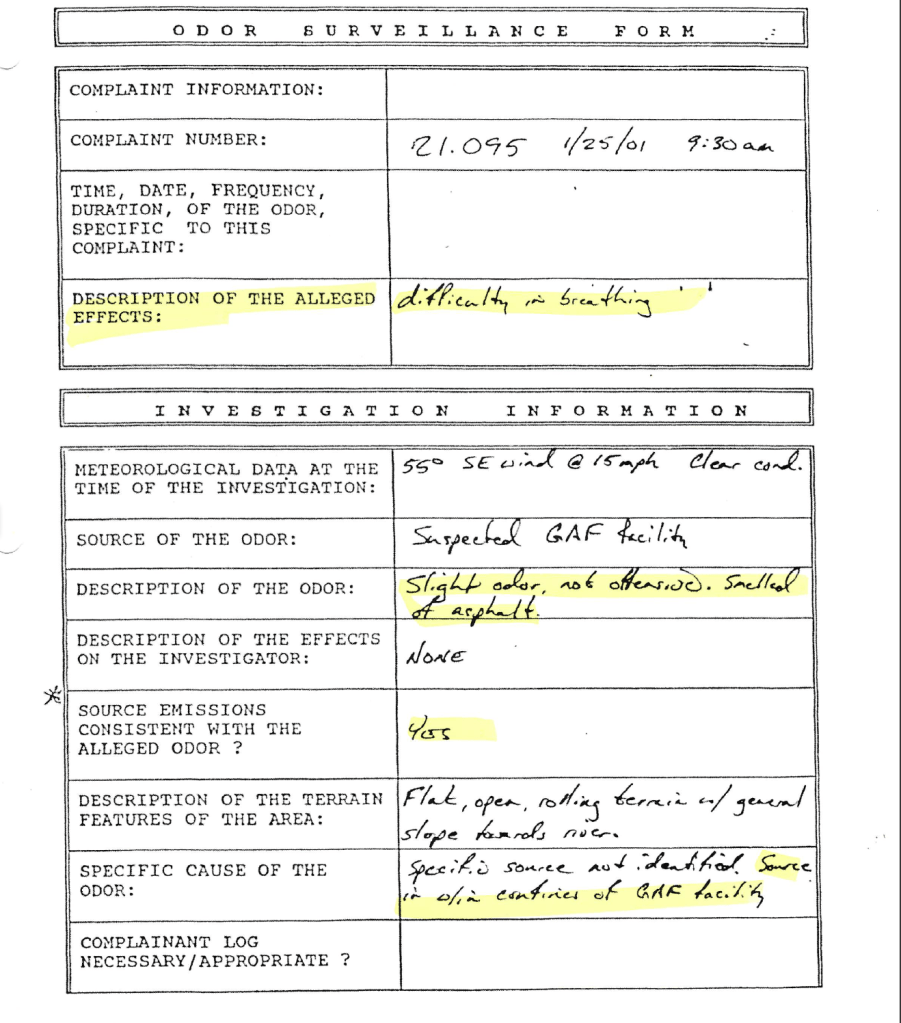 ODOR SURVEILLANCE FORM
COMPLAINT INFORMATION:
COMPLAINT NUMBER: 21.095 1/25/01 9:30 am
TIME, DATE, FREQUENCY,
DURATION, OF THE ODOR,
SPECIFIC TO THIS
COMPLAINT:
DESCRIPTION OF THE ALLEGED
EFFECTS:
difficulty in breathing
INVESTIGATION INFORMATION
METEOROLOGICAL DATA AT THE
TIME OF THE INVESTIGATION:
55° SE wind @ 15 mph Clear cond.
SOURCE OF THE ODOR: Suspected GAF facility
DESCRIPTION OF THE ODOR:
Slight odor, not offensive. Smelled
of asphalt.
DESCRIPTION OF THE EFFECTS
ON THE INVESTIGATOR:
NONE
*
SOURCE EMISSIONS
CONSISTENT WITH THE
ALLEGED ODOR ?
Yes
DESCRIPTION OF THE TERRAIN
FEATURES OF THE AREA:
Flat, open, rolling terrain w/ general
slope towards river.
SPECIFIC CAUSE OF THE
ODOR:
Specific source not identified. Source
in w/in confines of GAF facility
COMPLAINANT LOG
NECESSARY/APPROPRIATE ?